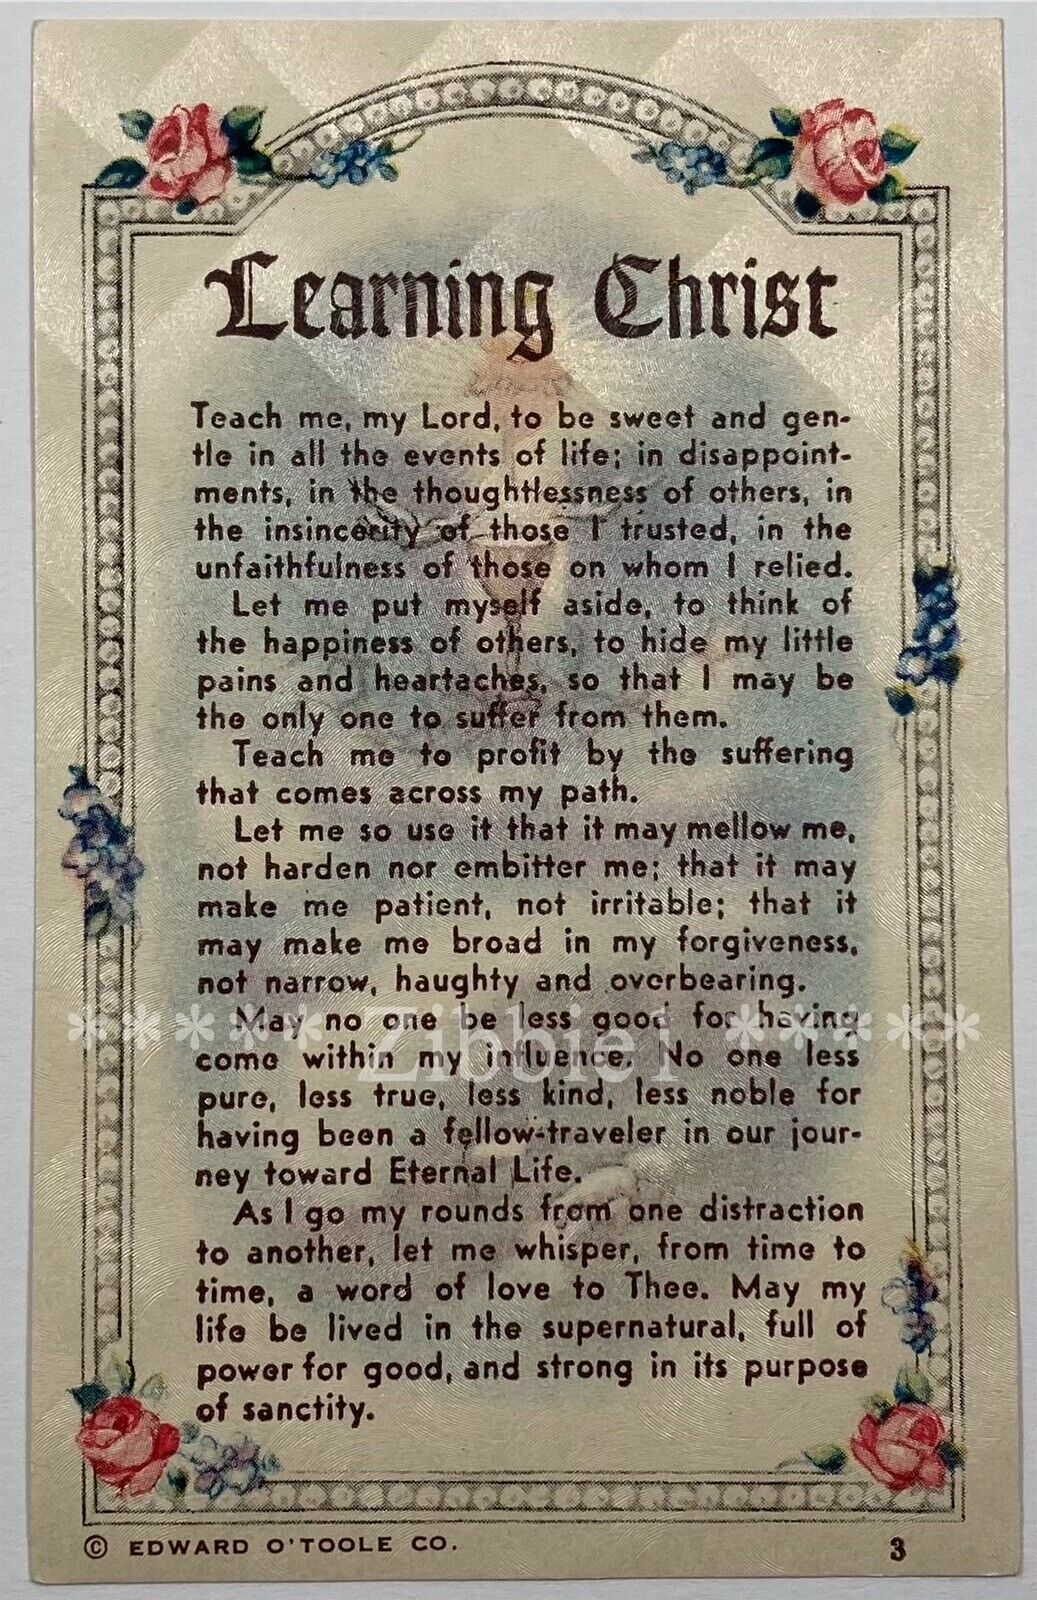 Learning Christ
Teach me, my Lord, to be sweet and gen-
tle in all the events of life; in disappoint-
ments, in the thoughtlessness of others, in
the insincerity of those I trusted, in the
unfaithfulness of those on whom I relied.
Let me put myself aside, to think of
the happiness of others, to hide my little
pains and heartaches, so that I may be
the only one to suffer from them.
Teach me to profit by the suffering
that comes across my path.
Let me so use it that it may mellow me,
not harden nor embitter me; that it may
make me patient, not irritable; that it
may make me broad in my forgiveness,
not narrow, haughty and overbearing.
May no one be less good for having
come within my influence. No one less
pure, less true, less kind, less noble for
having been a fellow-traveler in our jour-
ney toward Eternal Life.
As I go my rounds from one distraction
to another, let me whisper, from time to
time, a word of love to Thee. May my
life be lived in the supernatural, full of
power for good, and strong in its purpose
of sanctity.
***** Zibbie1 *****
© EDWARD O'TOOLE CO. 3